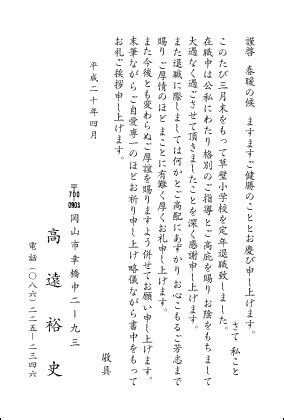 謹啓 春暖の候 ますますご健勝のこととお慶び申し上げます。
さて 私こと
このたび三月末をもって草壁小学校を定年退職致しました。
在職中は公私にわたり格別のご指導とご高庇を賜りお陰をもちまして
大過なく過ごさせて頂きましたことを深く感謝申し上げます。
また退職に際しましては何かとご高配にあずかりお心こもるご芳志まで
賜りご厚情のほどまことに有難く厚くお礼申し上げます。
また今後とも変わらぬご厚誼を賜りますよう併せてお願い申し上げます。
末筆ながらご自愛専一のほどお祈り申し上げ略儀ながら書中をもって
お礼ご挨拶申し上げます。
敬具
平成二十年四月
〒700-0903
岡山市幸橋中二ー九三
高遠裕史
電話(〇八六)二二五ー二三四六